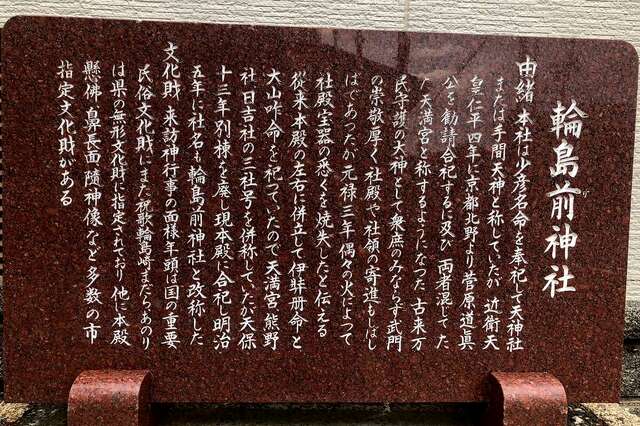 輪島前神社
由緒 本社は少彦名命を奉祀して天神社
または手間天神と称していたが 近衛天
皇仁平四年に京都北野より菅原道眞
公を勧請合祀するに及び 両者混じてた
た天満宮と称するようになつた 古来万
民守護の大神として衆庶のみならず武門
の崇敬厚く社殿や社領の寄進もしばし
ばであつたが元禄三年偶々の火によつて
社殿宝器の悉くを焼失したと伝える
從来本殿の左右に併立して伊弉册命と
大山咋命を祀つていたので天満宮 熊野
社 日吉社の三社号を併称していたが天保
十三年別棟を廃し現本殿に合祀し明治
五年に社名も輪島前神社と改称した
文化財 来訪神行事の面様年頭は国の重要
民俗文化財にまた祝歌輪島崎まだらあのり
は県の無形文化財に指定されており 他に本殿
懸佛 鼻長面 隨神像など多数の市
指定文化財がある